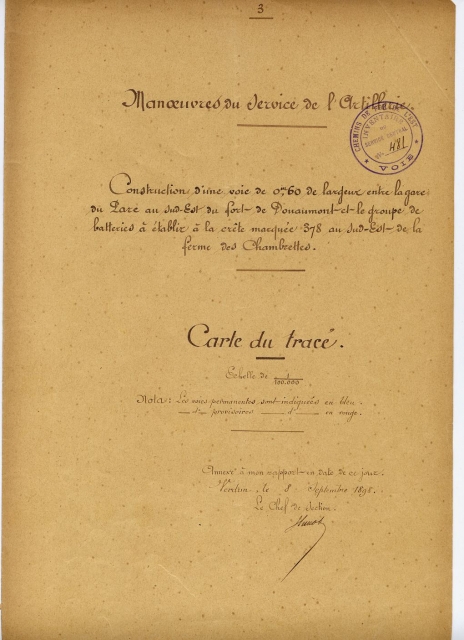 3
Manœuvres du Service de l'Artillerie.
CHEMINS DE L'EST
INVENTAIRE
481
VOIE
Construction d'une voie de 0m60 de largeur entre la gare
du Parc au Sud-Est du fort de Douaumont et le groupe de
batteries à établir à la crête marquée 378 au Sud-Est de la
ferme des Chambrettes.
Carte du tracé.
Echelle de 1/100.000
Nota: Les voies permanentes sont indiquées en bleu.
— do — provisoires — do — en rouge.
Annexé à mon rapport en date de ce jour.
Verdun, le 8 Septembre 1898.
Le Chef de Section